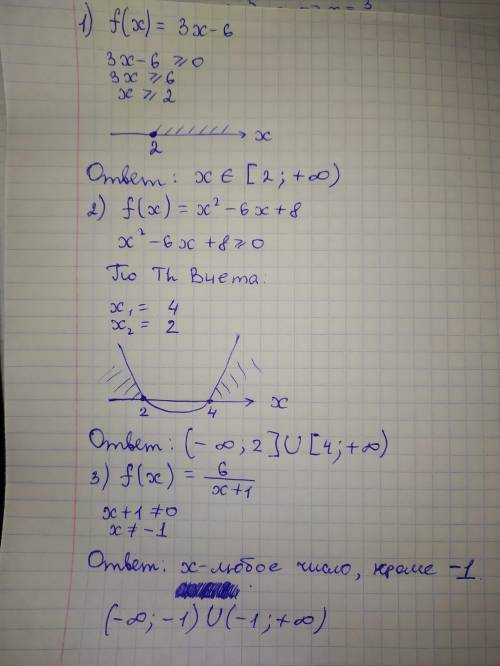 1) f(x) = 3x-6
3x-6 ⩾ 0
3x ⩾ 6
x ⩾ 2
2 x
Ответ: x ∈ [2; +∞)
2) f(x) = x² - 6x + 8
x² - 6x + 8 ⩾ 0
По Th Виета:
x₁ = 4
x₂ = 2
2 4 x
Ответ: (-∞; 2] ∪ [4; +∞)
3) f(x) = 6/(x+1)
x+1 ≠ 0
x ≠ -1
Ответ: x-любое число, кроме -1
(-∞; -1) ∪ (-1; +∞)